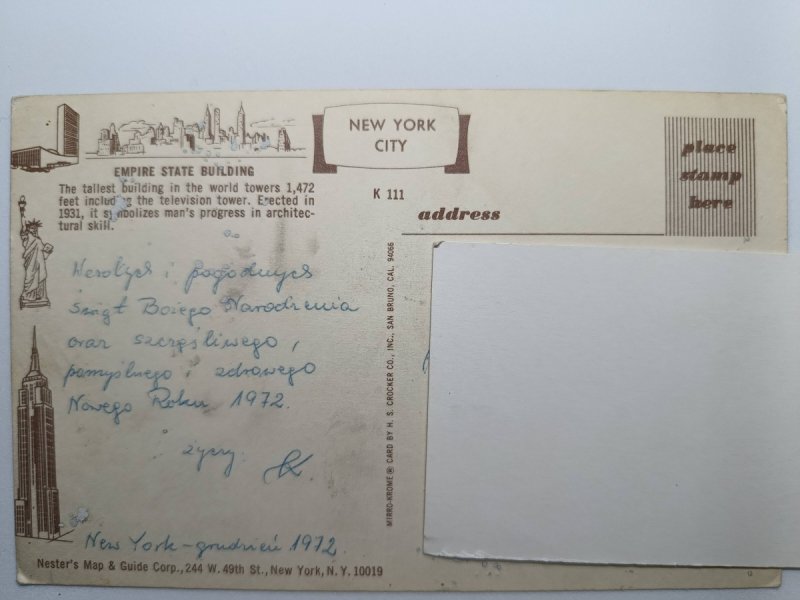 NEW YORK
CITY
EMPIRE STATE BUILDING
The tallest building in the world towers 1,472
feet including the television tower. Erected in
1931, it symbolizes man's progress in architec-
tural skill.
K 111
address
place
stamp
here
Wesołych i pogodnych
Świąt Bożego Narodzenia
oraz szczęśliwego,
pomyślnego i zdrowego
Nowego Roku 1972.
życzy
New York - grudzień 1972.
MIRRO-KROME® CARD BY H. S. CROCKER CO., INC., SAN BRUNO, CAL. 94066
Nester's Map & Guide Corp., 244 W. 49th St., New York, N. Y. 10019